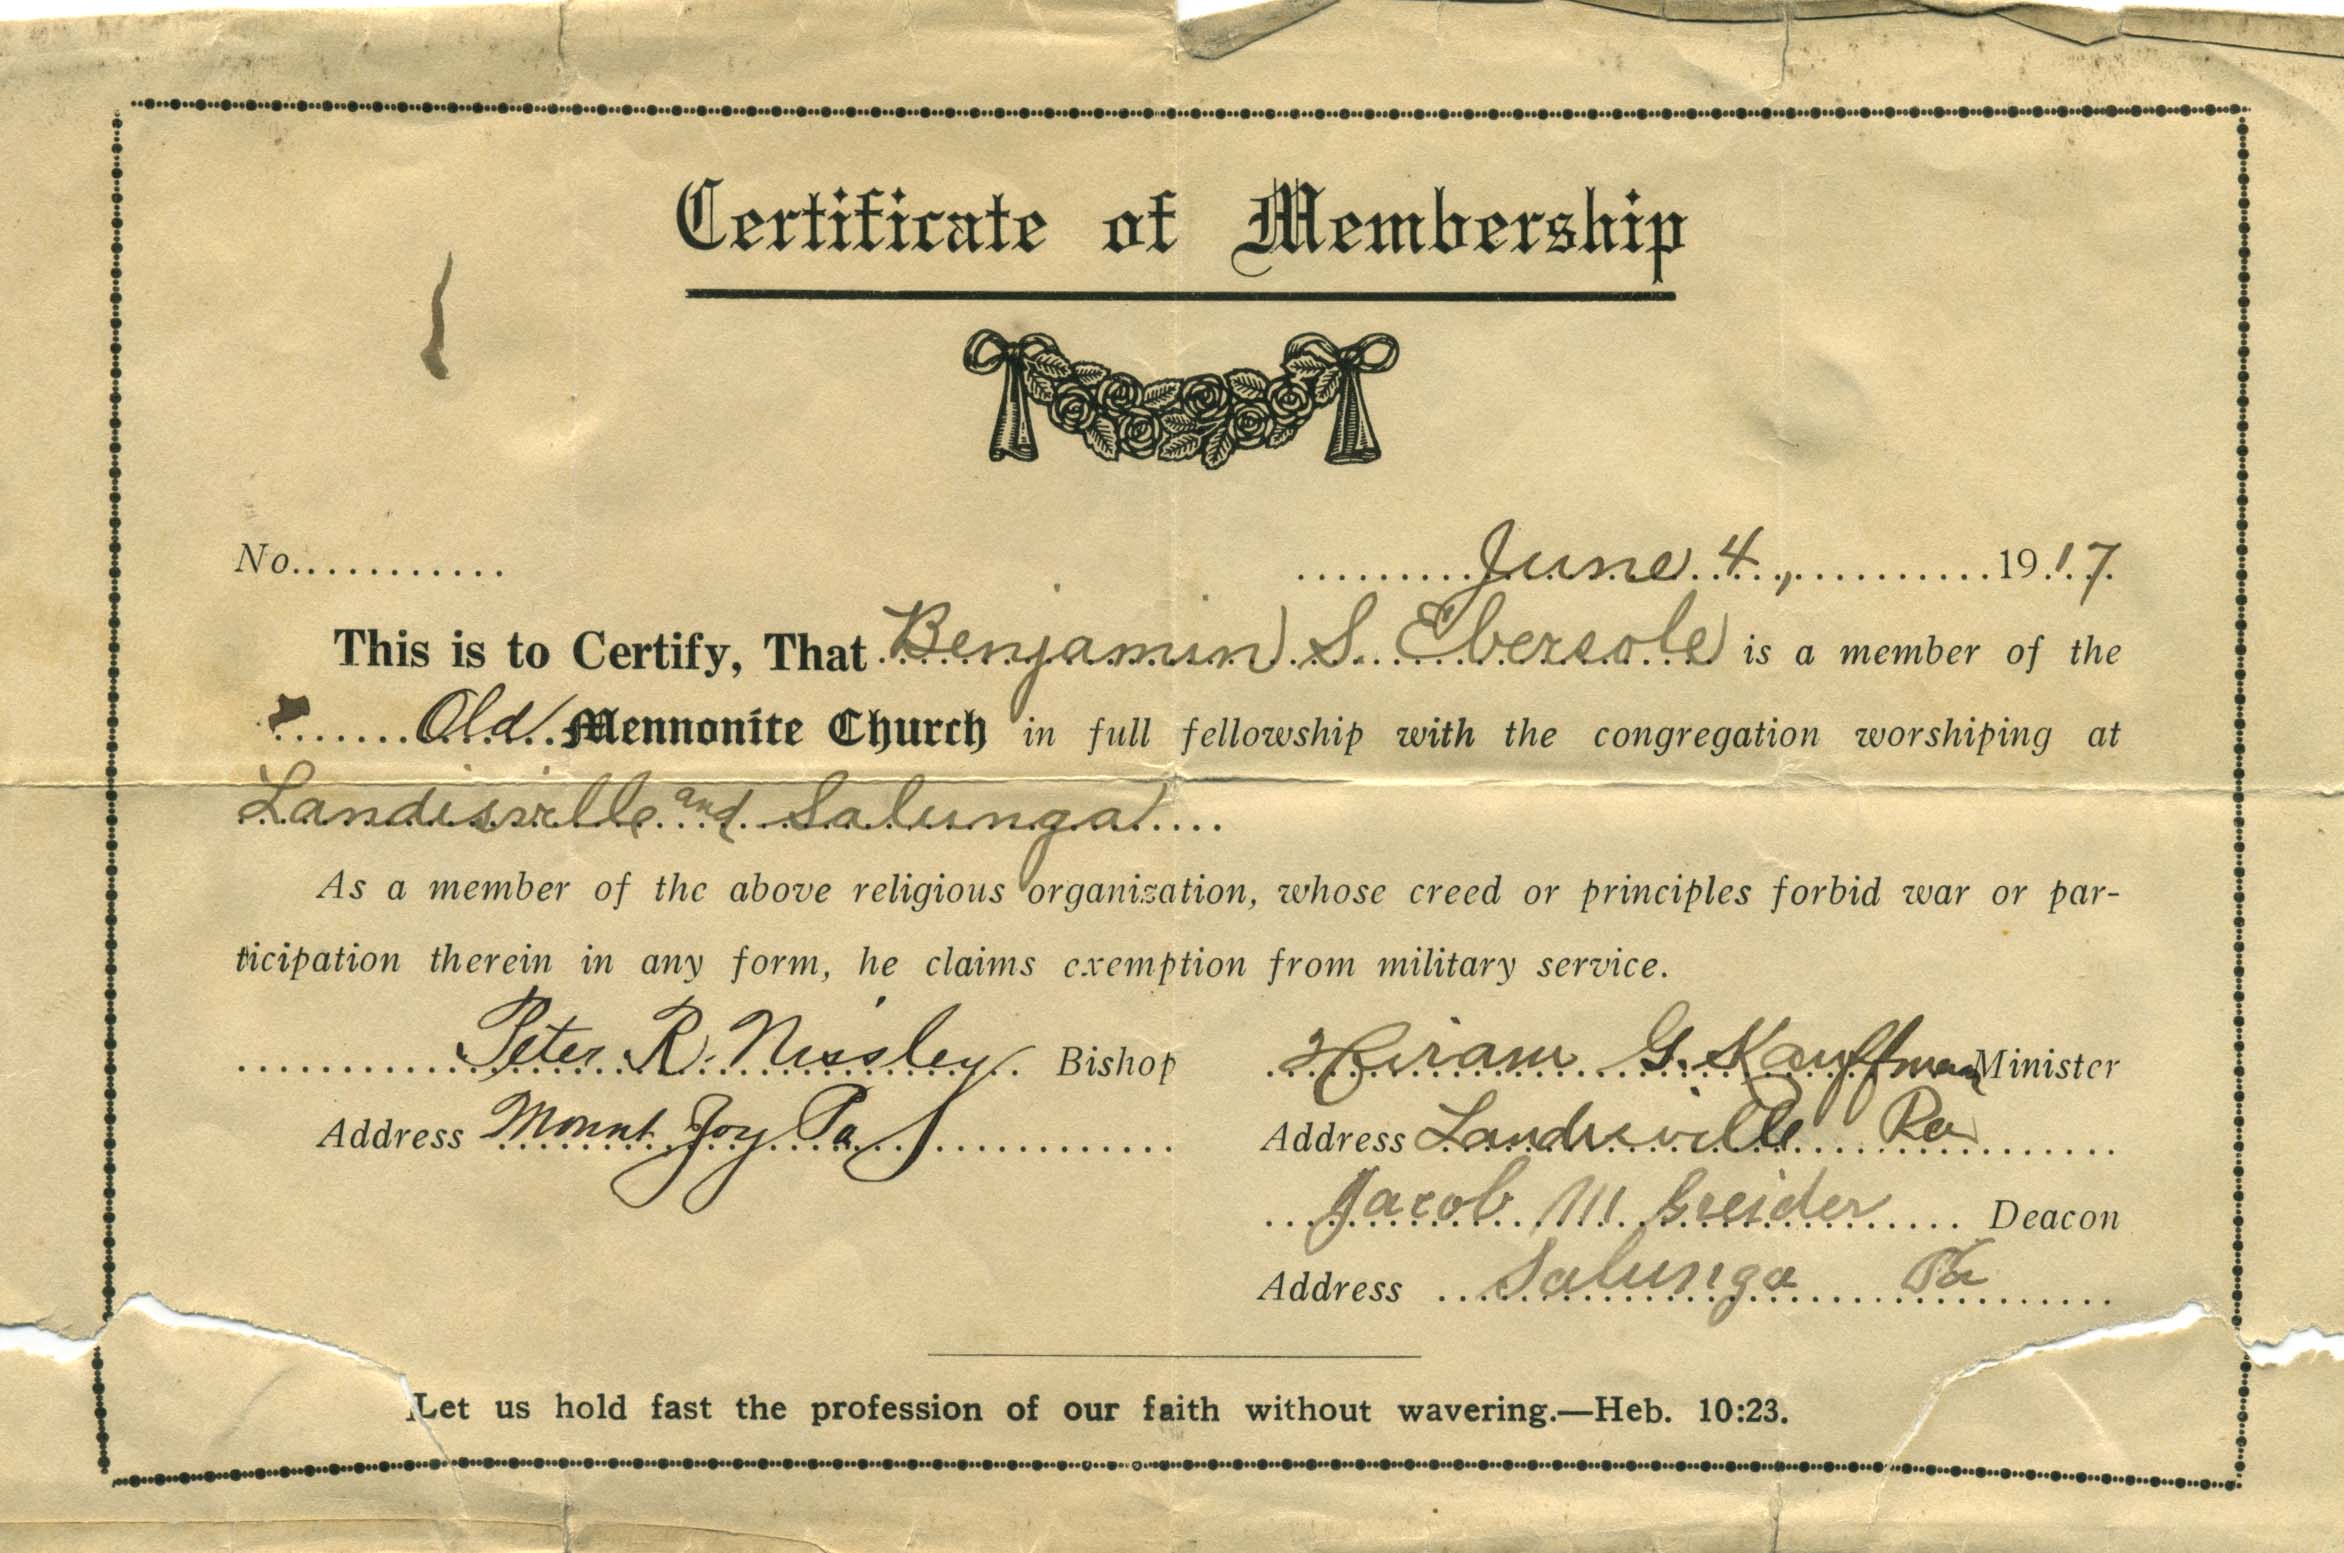 Certificate of Membership
No............ June 4, 1917
This is to Certify, That Benjamin S. Ebersole is a member of the
Old Mennonite Church in full fellowship with the congregation worshiping at
Landisville and Salunga
As a member of the above religious organization, whose creed or principles forbid war or par-
ticipation therein in any form, he claims exemption from military service.
Peter R. Nissley Bishop
Address Mount Joy Pa
Hiram G. Kauffman Minister
Address Landisville Pa
Jacob M Greider Deacon
Address Salunga Pa
Let us hold fast the profession of our faith without wavering.—Heb. 10:23.